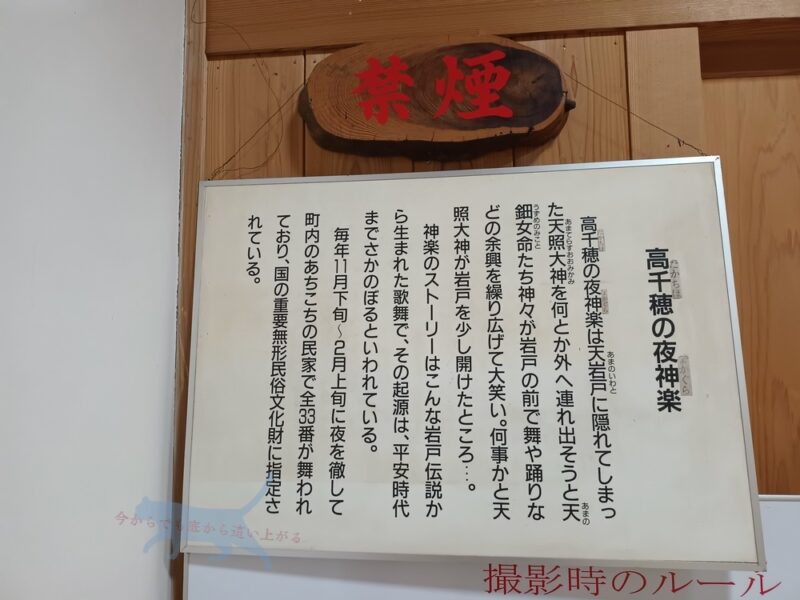 禁煙
高千穂の夜神楽
高千穂の夜神楽は天岩戸に隠れてしまっ
た天照大神を何とか外へ連れ出そうと天
鈿女命たち神々が岩戸の前で舞や踊りな
どの余興を繰り広げて大笑い。何事かと天
照大神が岩戸を少し開けたところ…。
神楽のストーリーはこんな岩戸伝説か
ら生まれた歌舞で、その起源は、平安時代
までさかのぼるといわれている。
毎年11月下旬～2月上旬に夜を徹して
町内のあちこちの民家で全33番が舞われ
ており、国の重要無形民俗文化財に指定さ
れている。
今からでも底から這い上がる
撮影時のルール